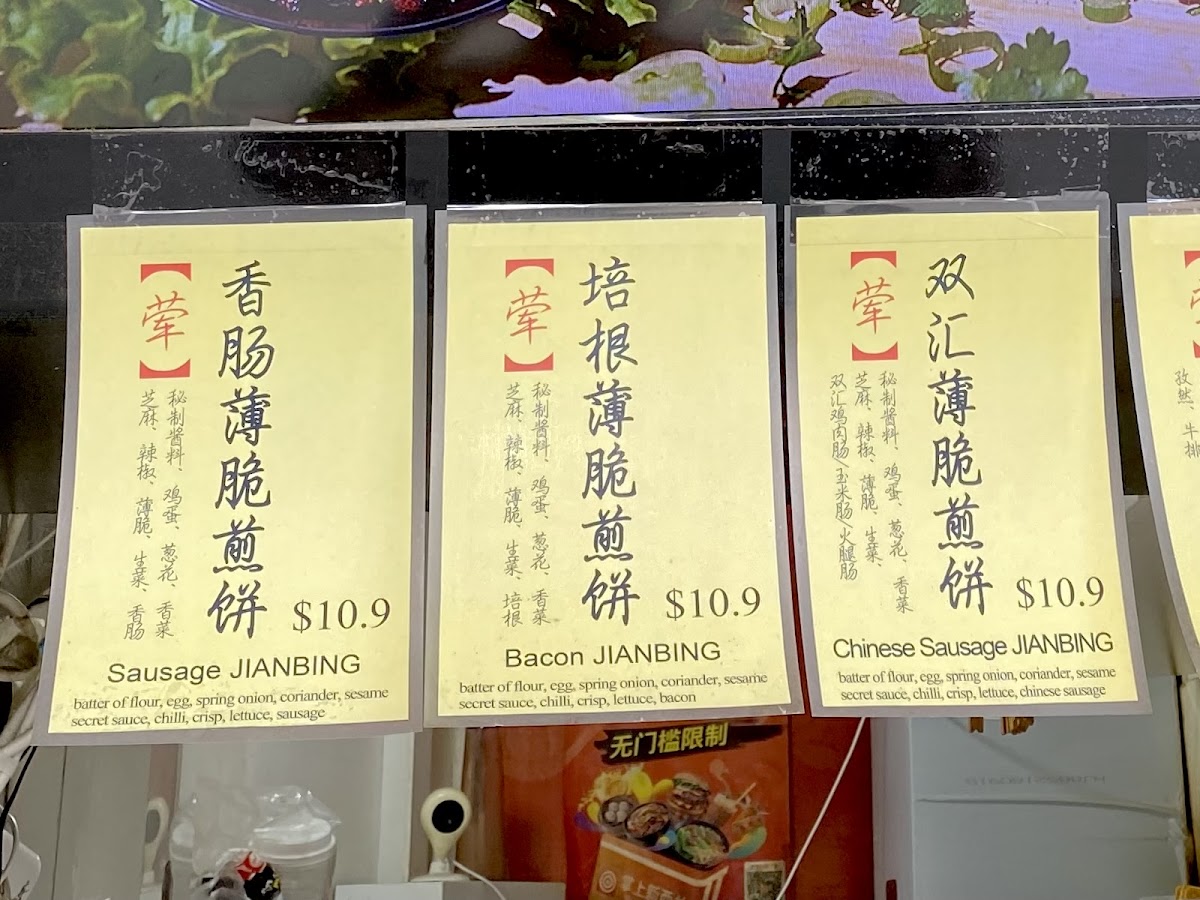 香肠薄脆煎饼
【荤】
秘制酱料、鸡蛋、葱花、香菜
芝麻、辣椒、薄脆、生菜、香肠
$10.9
Sausage JIANBING
batter of flour, egg, spring onion, coriander, sesame
secret sauce, chilli, crisp, lettuce, sausage
培根薄脆煎饼
【荤】
秘制酱料、鸡蛋、葱花、香菜
芝麻、辣椒、薄脆、生菜、培根
$10.9
Bacon JIANBING
batter of flour, egg, spring onion, coriander, sesame
secret sauce, chilli, crisp, lettuce, bacon
双汇薄脆煎饼
【荤】
秘制酱料、鸡蛋、葱花、香菜
芝麻、辣椒、薄脆、生菜、
双汇鸡肉肠\玉米肠\火腿肠
$10.9
Chinese Sausage JIANBING
batter of flour, egg, spring onion, coriander, sesame
secret sauce, chilli, crisp, lettuce, chinese sausage
孜然、牛排
无门槛限制